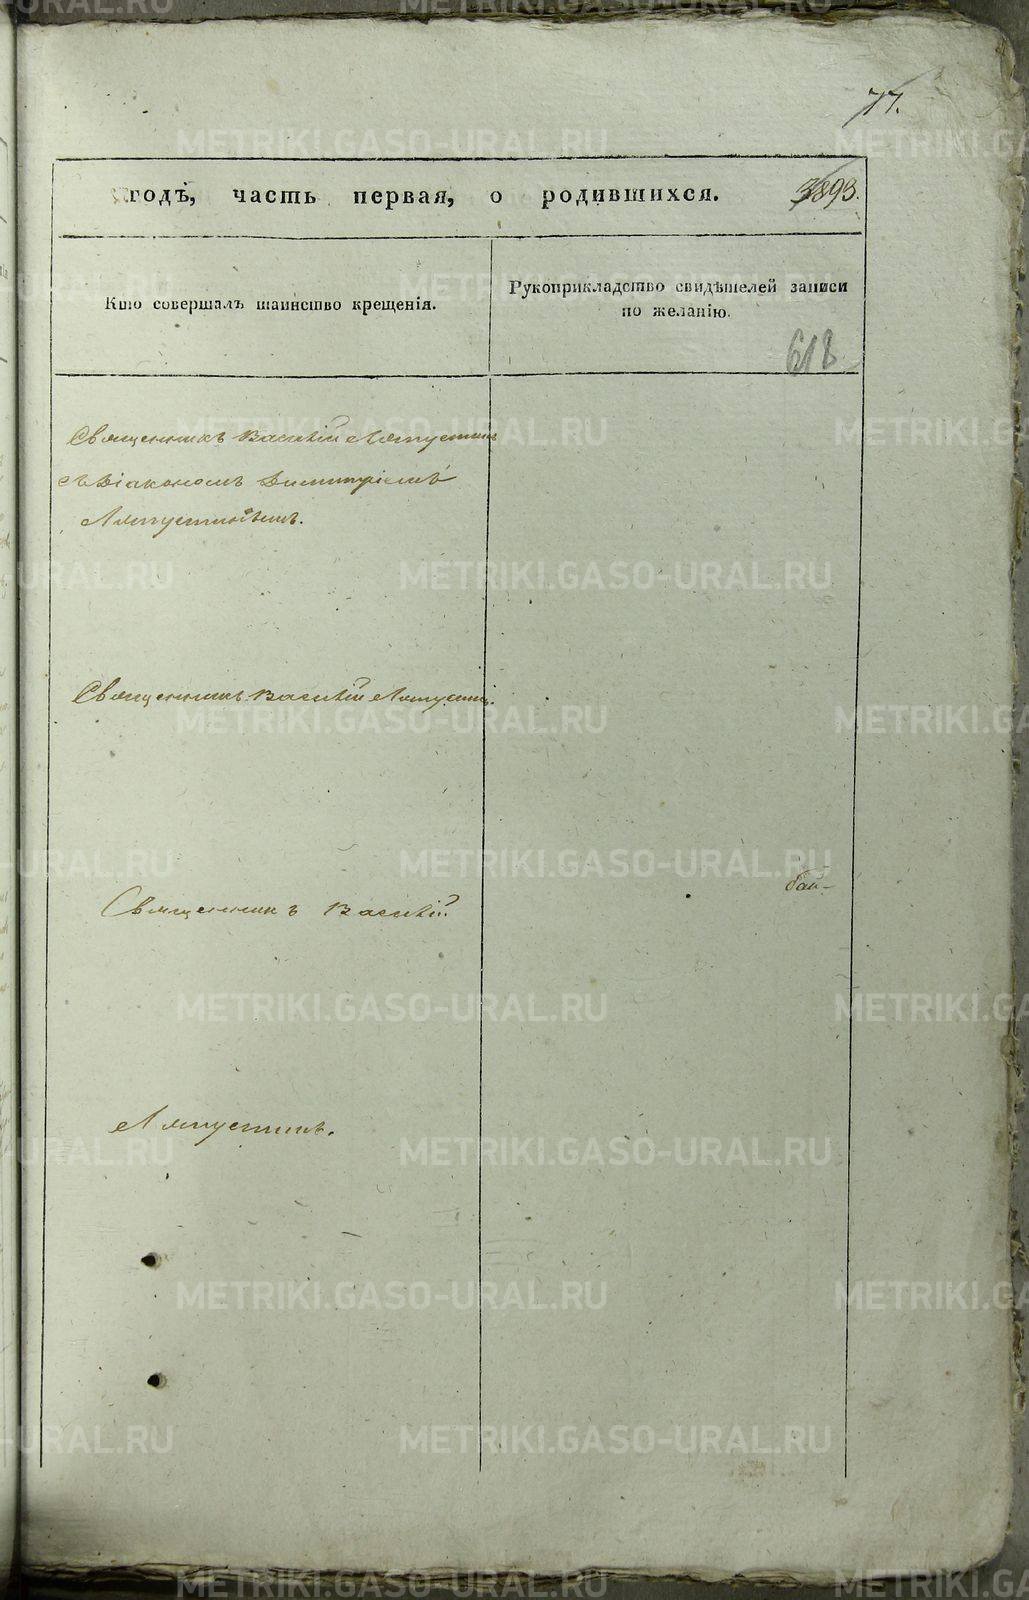 77.
годѣ, часть первая, о родившихся. 3893.
Кто совершалъ таинство крещенія.
Рукоприкладство свидѣтелей записи по желанію.
618
Священникъ Василій Ляпустинъ
съ Діакономъ Димитріемъ
Ляпустинымъ.
Священникъ Василій Ляпустинъ.
бай-
Священникъ Василій
Ляпустинъ.
METRIKI.GASO-URAL.RU